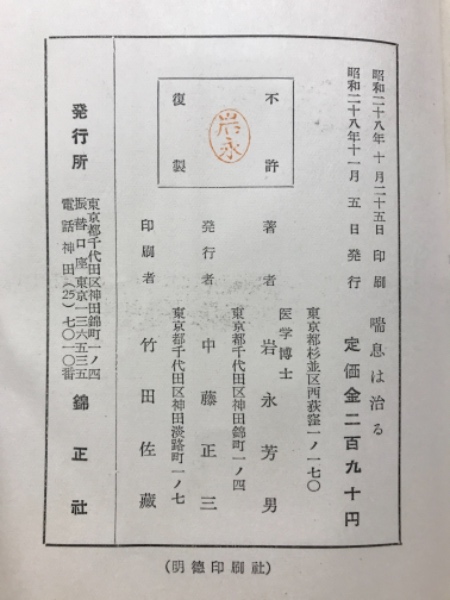 昭和二十八年十月二十五日印刷
昭和二十八年十一月五日発行
喘息は治る
定価金二百九十円
不許
復製
岩永
東京都杉並区西荻窪一ノ一七〇
著者
医学博士
岩永芳男
東京都千代田区神田錦町一ノ四
発行者
中藤正三
東京都千代田区神田淡路町一ノ七
印刷者
竹田佐藏
発行所
東京都千代田区神田錦町一ノ四
振替口座東京一三六五三五
電話神田(25)七〇一〇番
錦正社
(明徳印刷社)